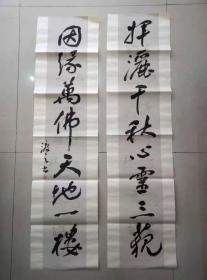 揮灑千秋心靈三藐
因緣萬佛天地一樓